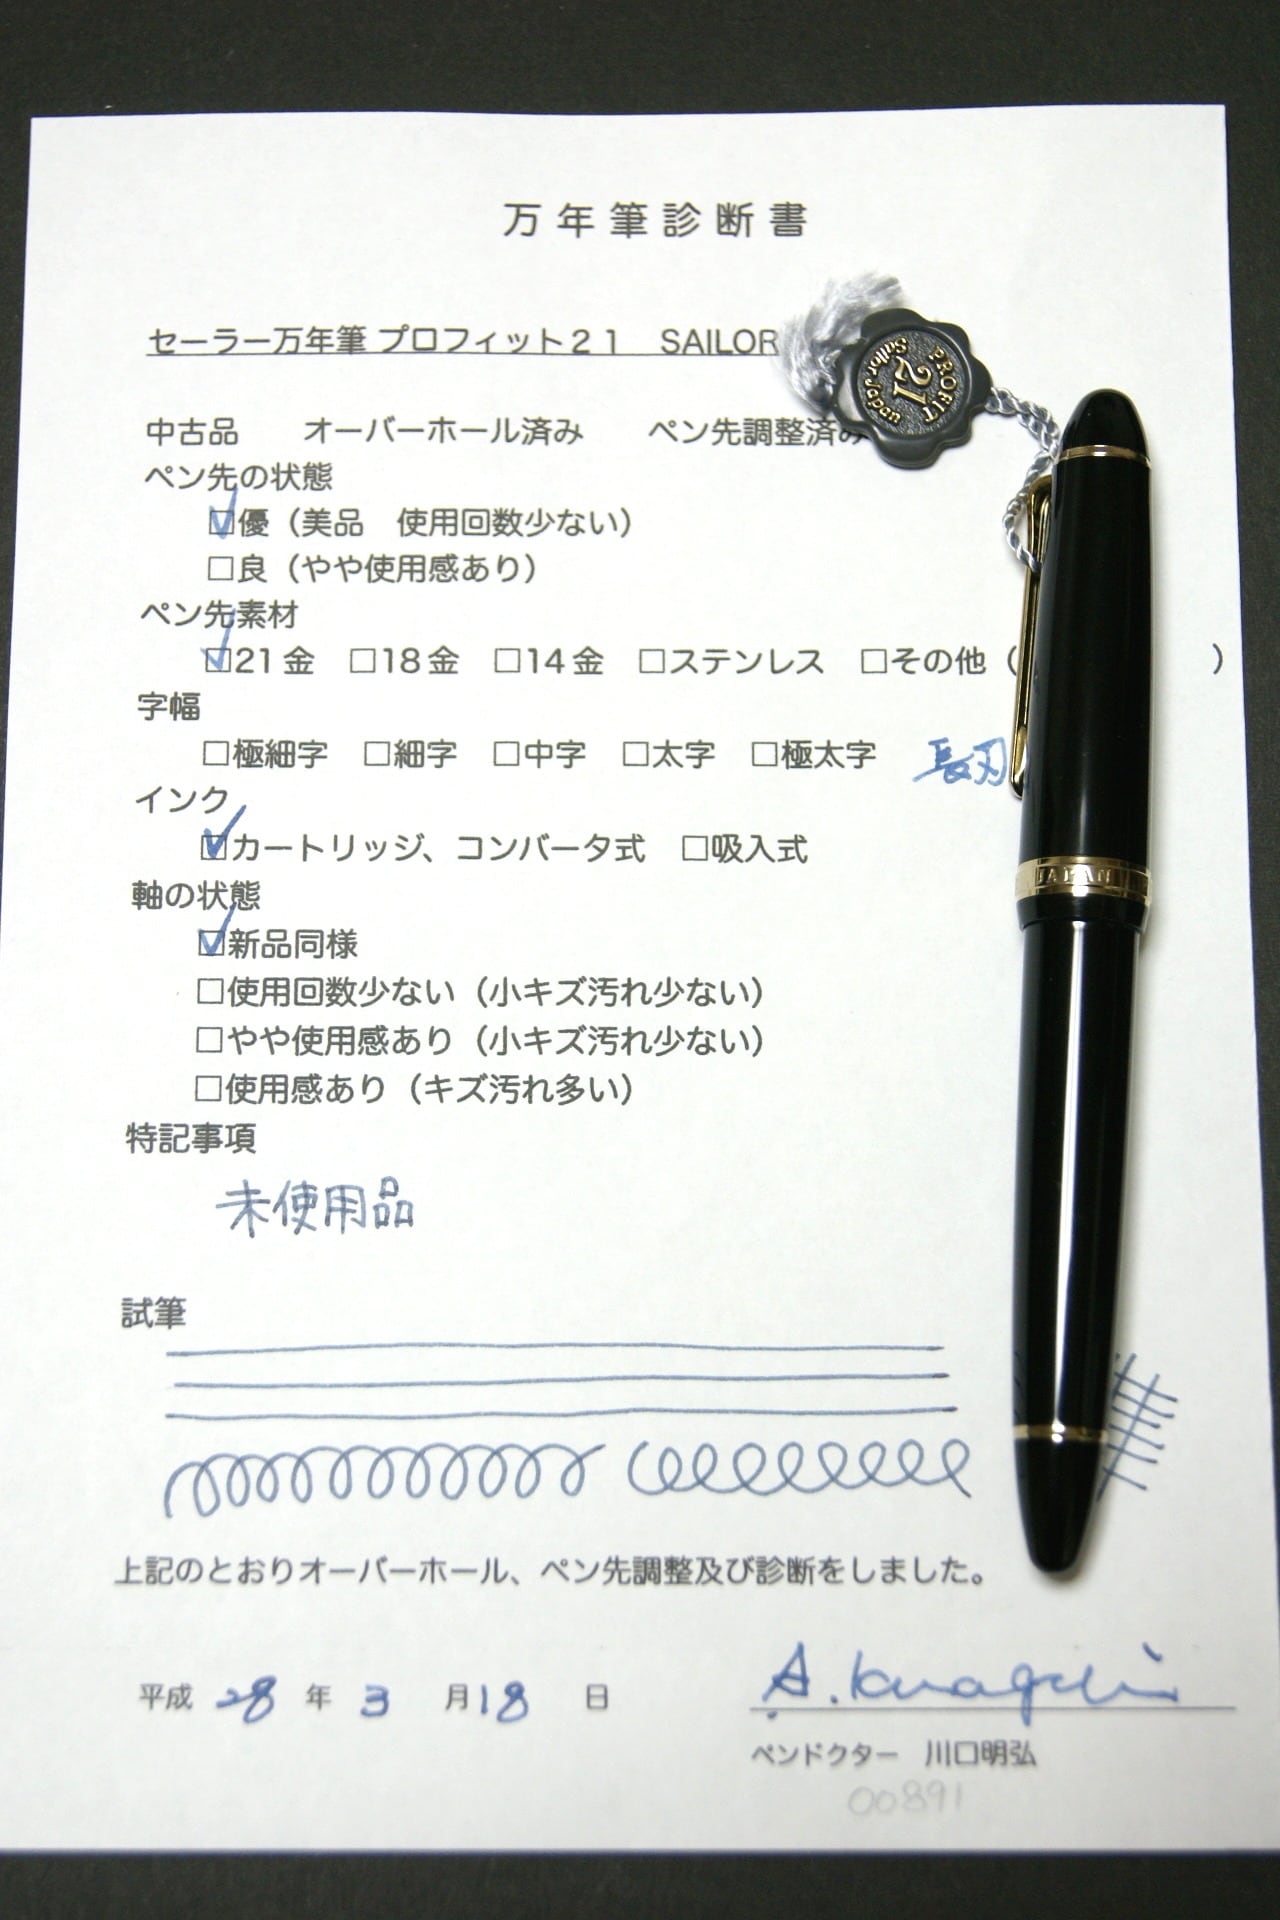 万年筆診断書
セーラー万年筆 プロフィット21 SAILOR
PROFIT
21
Sailor Japan
中古品 オーバーホール済み ペン先調整済み
ペン先の状態
☑優（美品 使用回数少ない）
□良（やや使用感あり）
ペン先素材
☑21金 □18金 □14金 □ステンレス □その他（ ）
字幅
□極細字 □細字 □中字 □太字 □極太字 長刃
インク
☑カートリッジ、コンバータ式 □吸入式
JAPAN
軸の状態
☑新品同様
□使用回数少ない（小キズ汚れ少ない）
□やや使用感あり（小キズ汚れ少ない）
□使用感あり（キズ汚れ多い）
特記事項
未使用品
試筆
上記のとおりオーバーホール、ペン先調整及び診断をしました。
平成 28 年 3 月 18 日 A. Kawaguchi
ペンドクター 川口明弘
00891